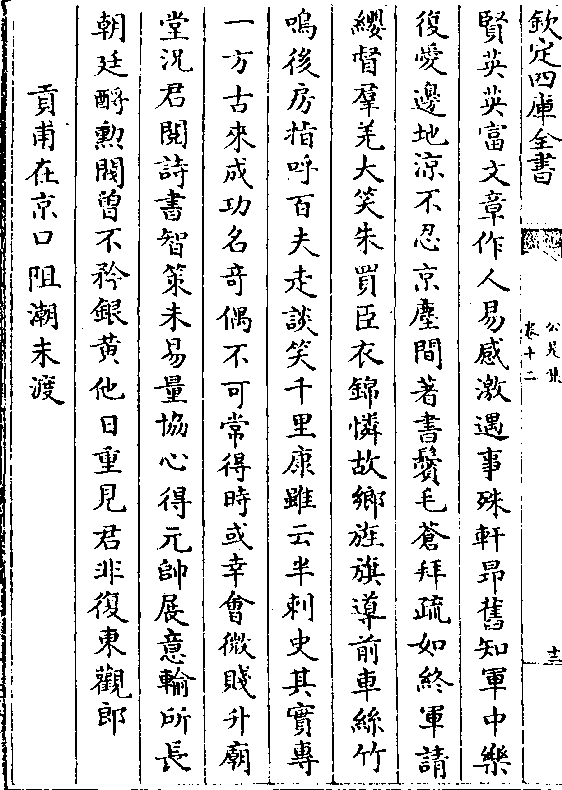 欽定四庫全書
公是集
卷十二
十三
賢英英富文章作人易感激遇事殊軒昂舊知軍中樂
復愛邊地涼不忍京塵間著書鬢毛蒼拜疏如終軍請
纓督羣羌大笑朱買臣衣錦憐故鄉旌旗導前車絲竹
嗚後房指呼百夫走談笑千里康雖云半刺史其實專
一方古來成功名竒偶不可常得時或幸會微賤升廟
堂況君閱詩書智䇿未易量協心得元帥展意輸所長
朝廷酹勲閥曾不矜銀黄他日重見君非復東觀郎
貢甫在京口阻潮未渡